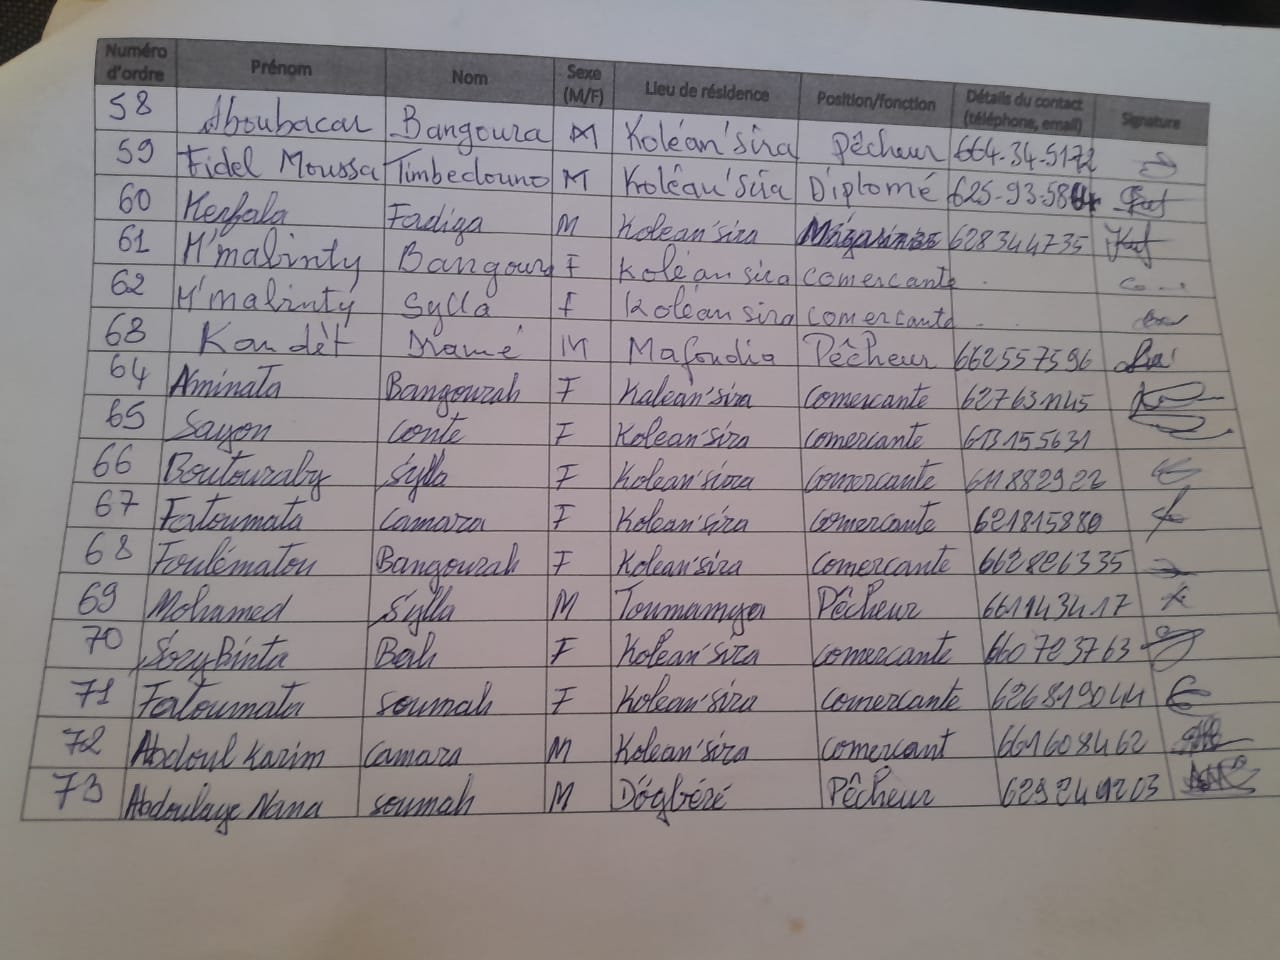 Numéro d'ordre Prénom Nom Sexe (M/F) Lieu de résidence Position/fonction Détails du contact (téléphone, email) Signature
58 Aboubacar Bangoura M Koléan'sira Pêcheur 664-34-5172
59 Fidel Moussa Timbedouno M Koléan'sira Diplomé 625-93-58
60 Kerfala Fadiga M Kolean'sira 628344735
61 M'malinty Bangoura F Koléan sira comercante
62 M'malinty Sylla f Koléan sira comercante
63 Kandèt Dramé M Mafoudia Pêcheur 662557596
64 Aminata Bangourah F Kalean'sira comercante 627631145
65 Sayon conte F Kolean'sira comercante 613155631
66 Boutouraby Sylla F Kolean'sira comercante 611882922
67 Fatoumata camara F Kolean'sira comercante 621815880
68 Foulématou Bangourah F Kolean'sira comercante 662886335
69 Mohamed Sylla M Toumamya Pêcheur 661143417
70 Sory Binta Bah F Kolean'sira comercante 660783763
71 Fatoumata soumah F Kolean'sira comercante 626819044
72 Abdoul Karim camara M Kolean'sira comercant 661608462
73 Abdoulaye Nana soumah M Dögbéré Pêcheur 629249203